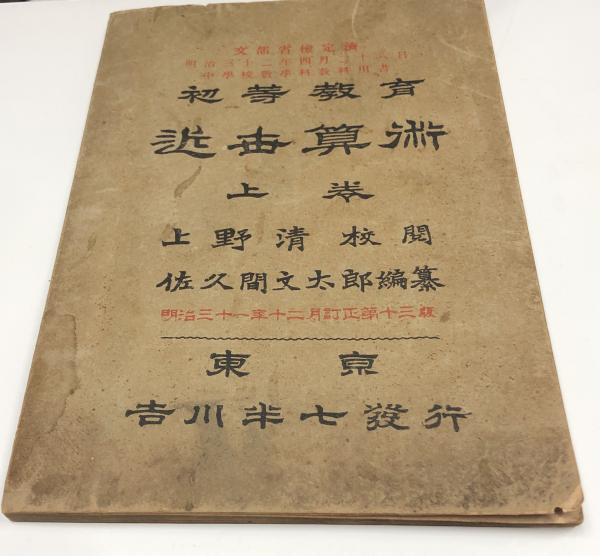 文部省検定済
明治三十二年四月二十六日
中學校數學科教科用書
初等教育
近世算術
上卷
上野清校閲
佐久間文太郎編纂
明治三十一年十二月訂正第十三版
東京
吉川半七發行